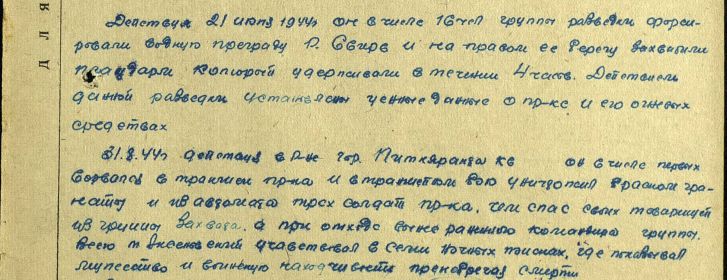 Д Л Я
Действуя 21 июня 1944г он в числе 16 чел группы разведки форси-
ровали водную преграду р. Свирь и на правом ее берегу захватили
плацдарм который удерживали в течении 4 часов. Действием
данной разведки установлены ценные данные о пр-ке и его огневых
средствах
31.8.44г действуя в р-не гор. Питкяранта он в числе первых
ворвался в траншею пр-ка и в траншейном бою уничтожил гра-
натой и из автомата трех солдат пр-ка, чем спас своих товарищей
из группы захвата, а при отходе раненного командира группы.
Всего т участвовал в семи ночных поисках, где показывал
мужество и воинскую находчивость презирая смерти